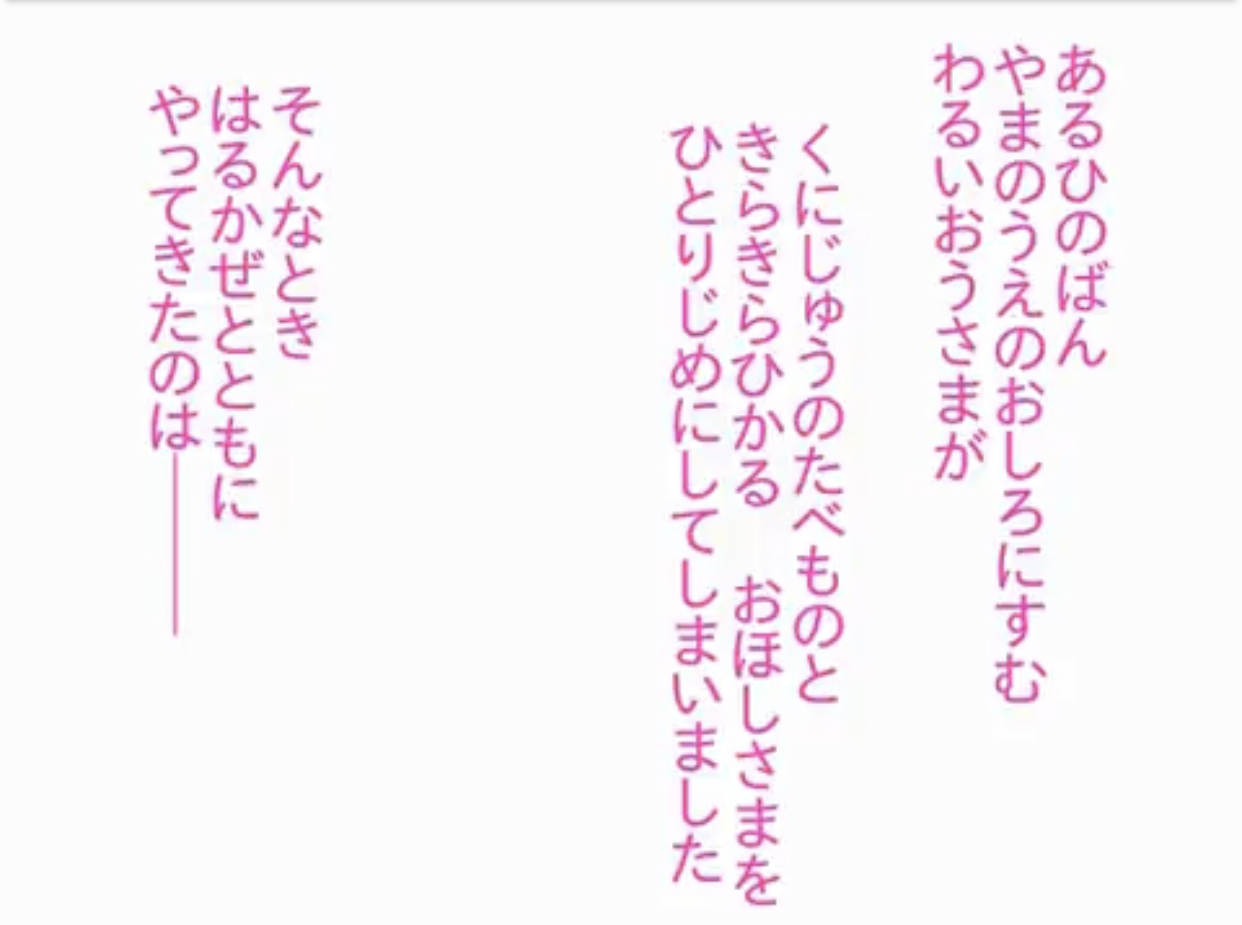 あるひのばん
やまのうえのおしろにすむ
わるいおうさまが
くにじゅうのたべものと
きらきらひかる　おほしさまを
ひとりじめにしてしまいました
そんなとき
はるかぜとともに
やってきたのは───